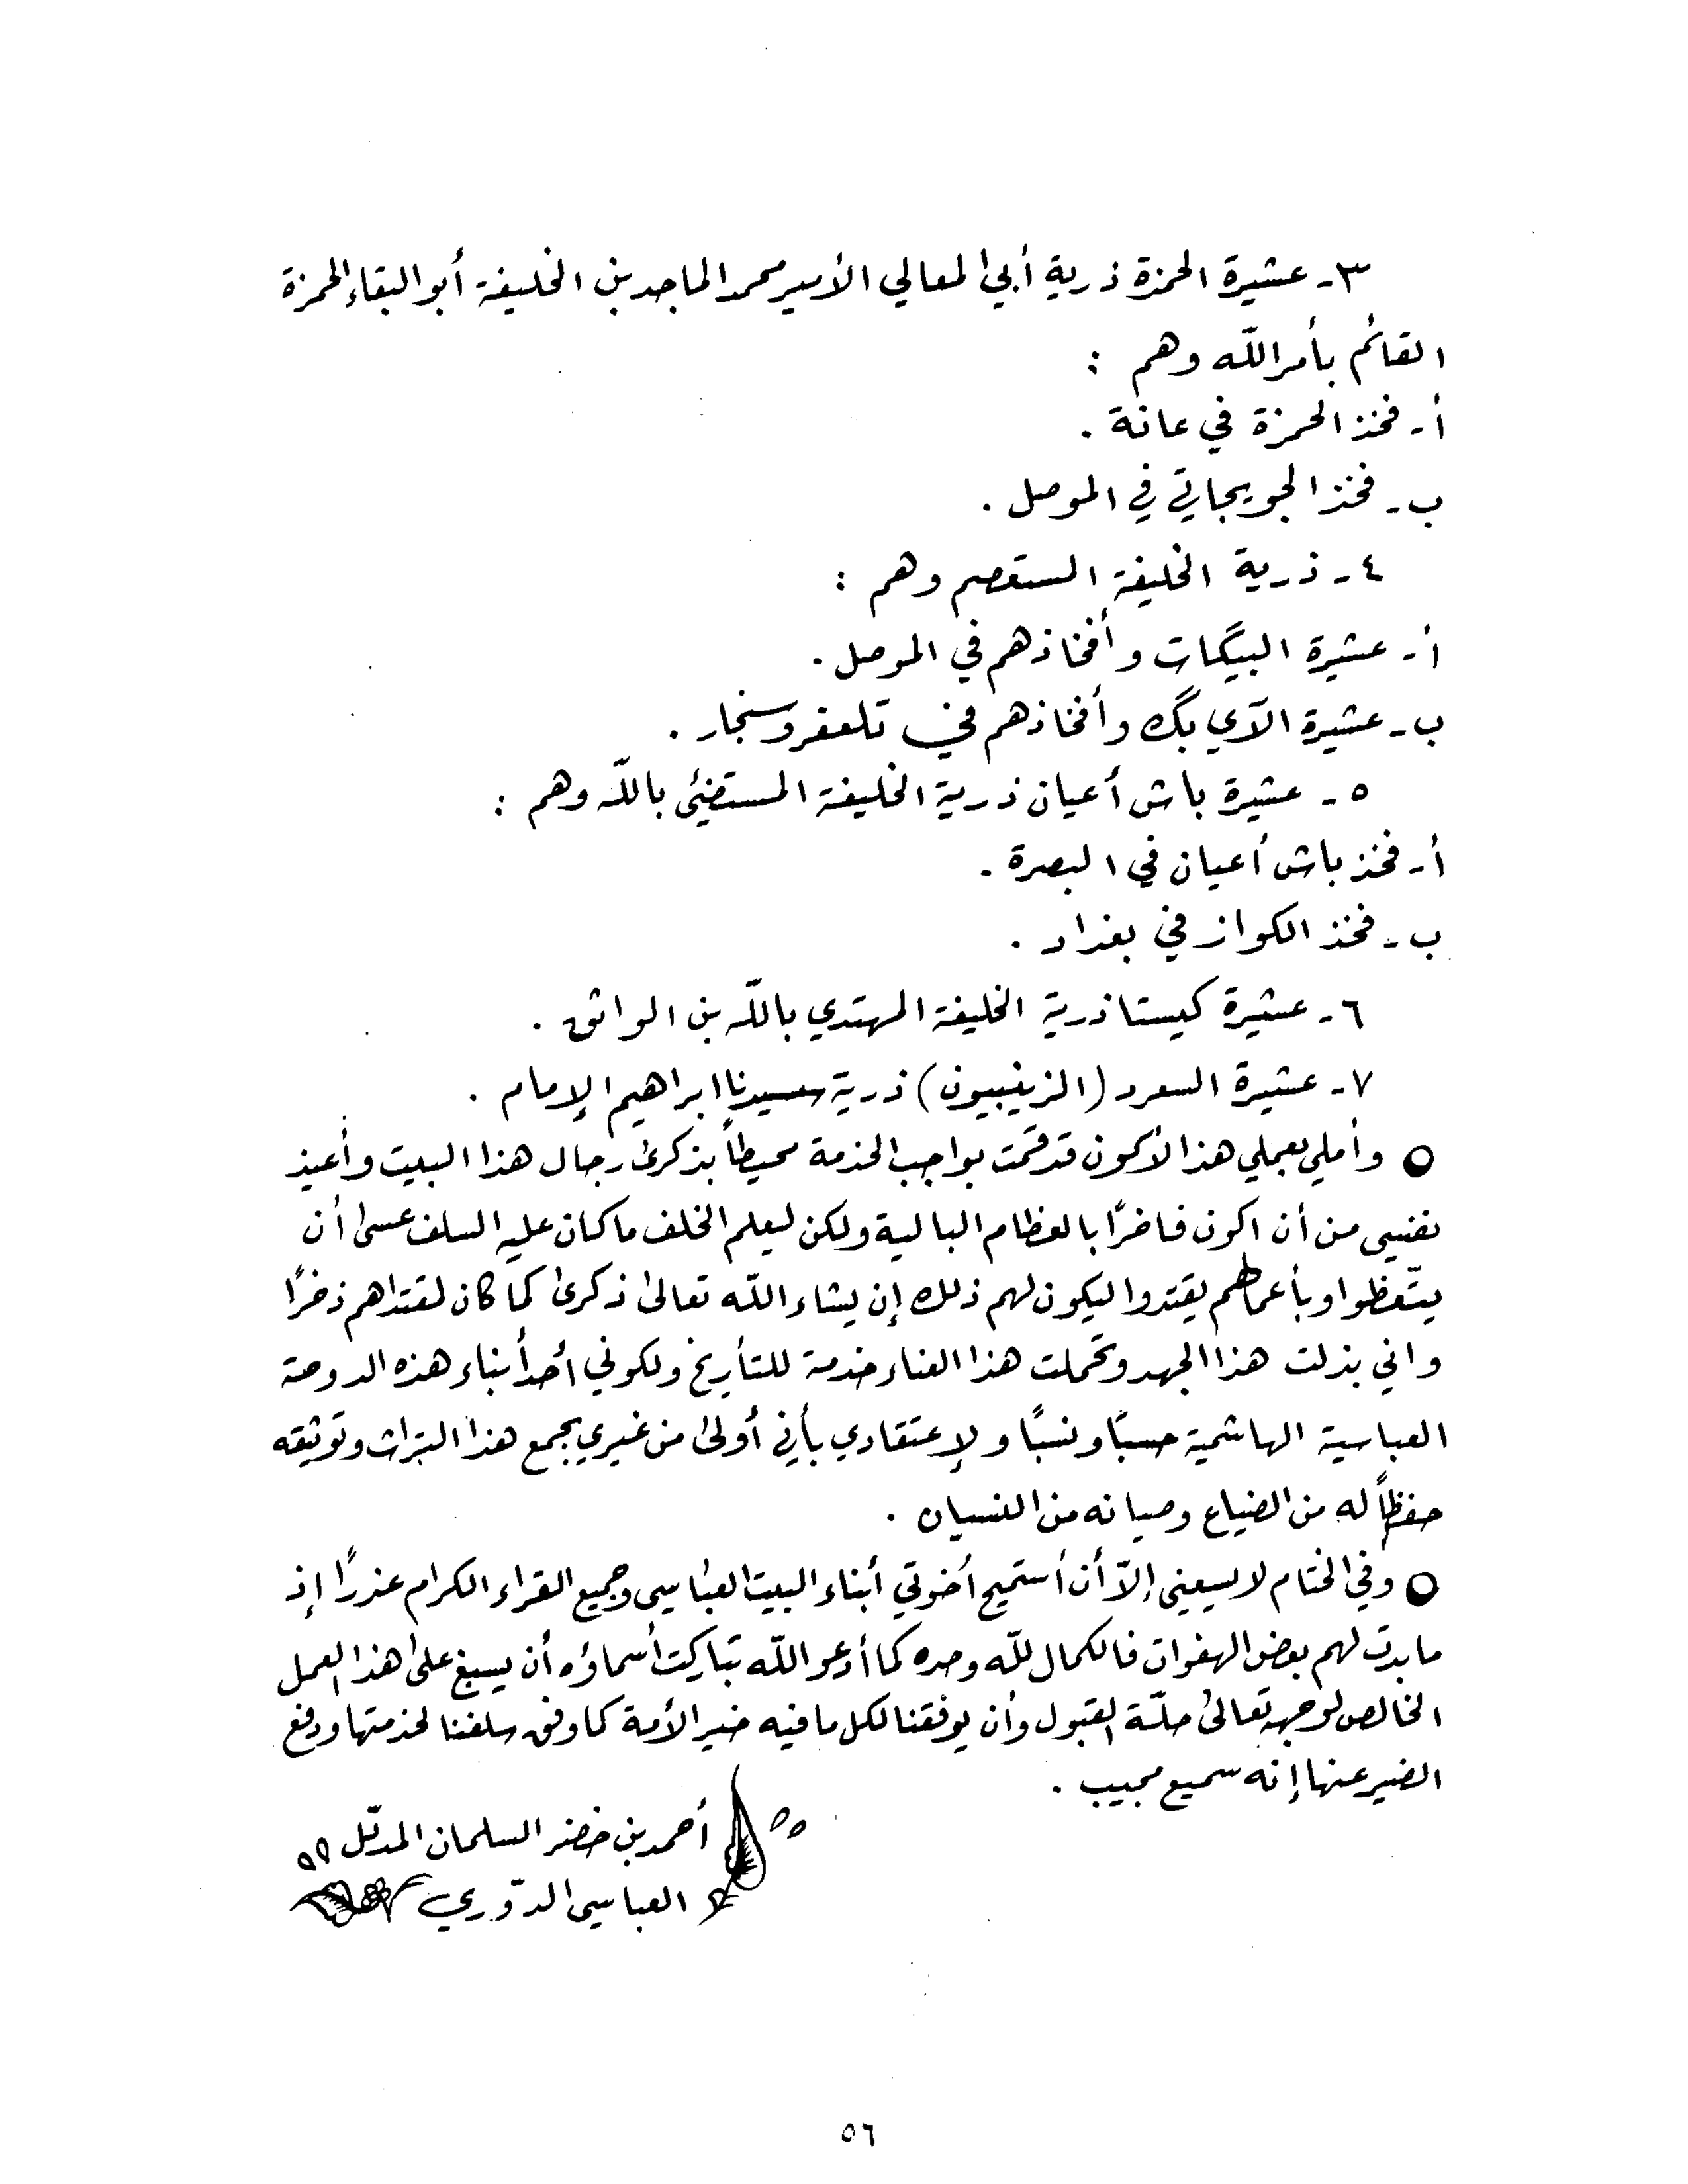 ٣- عشيرة الحمزة ذرية أبي المعالي الأمير محمد الماجد بن الخليفة أبو البقاء الحمزة
القائم بأمر اللّه وهم :
أ- فخذ الحمزة في عانة .
ب- فخذ الجويجاتي في الموصل .
٤- ذرية الخليفة المستعصم وهم :
أ- عشيرة البيگات وأفخاذهم في الموصل .
ب- عشيرة الآي بگ وأفخاذهم في تلعفر وسنجار .
٥- عشيرة باش أعيان ذرية الخليفة المستضيئ باللّه وهم :
أ- فخذ باش أعيان في البصرة .
ب- فخذ الكواز في بغداد .
٦- عشيرة كيستا ذرية الخليفة المهتدي باللّه بن الواثق .
٧- عشيرة السعرد (الزينبيون) ذرية سيدنا ابراهيم الإمام .
○ وأملي بعملي هذا لأكون قد قمت بواجب الخدمة محيطاً بذكرىٰ رجال هذا البيت وأعيذ
نفسي من أن اكون فاخرًا بالعظام البالية ولكن ليعلم الخلف ما كان عليه السلف عسىٰ أن
يتّعظوا وبأعمالهم يقتدوا ليكون لهم ذلك إن يشاء اللّه تعالىٰ ذكرىٰ كما كان لمقتداهم ذخرًا
واني بذلت هذا الجهد وتحملت هذا العناء خدمة للتأريخ ولكوني أحد أبناء هذه الدوحة
العباسية الهاشمية حسبًا ونسبًا ولإعتقادي بأني أولىٰ من غيري بجمع هذا التراث وتوثيقه
حفظاً له من الضياع وصيانه من النسيان .
○ وفي الختام لا يسعني إلاّ أن أستميح أخوتي أبناء البيت العباسي وجميع القراء الكرام عذرًا إذ
ما بدت لهم بعض الهفوات فالكمال للّه وحده كما أدعو اللّه تباركت أسماؤه أن يسبغ علىٰ هذا العمل
الخالص لوجهه تعالىٰ حلّة القبول وأن يوفقنا لكل ما فيه خير الأمة كما وفق سلفنا لخدمتها ودفع
الضير عنها إنه سميع مجيب .
أحمد بن خضر السلمان المدلّل
العباسي الدّوري
٥٦